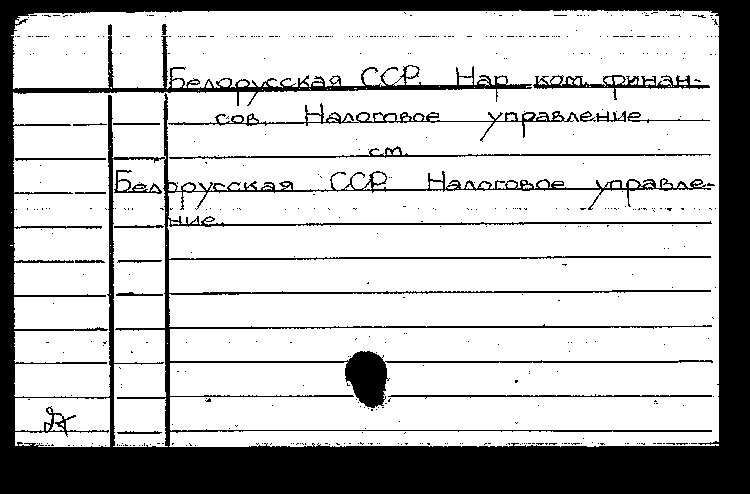 Белорусская ССР. Нар. ком. финан-
сов. Налоговое управление.
см.
Белорусская ССР. Налоговое управле-
ние.